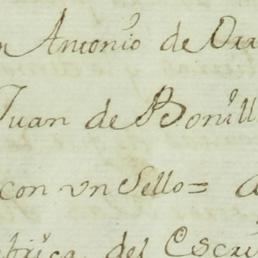 n Antonio de Orr
Juan de Bonill
con vn Sello=
brica del Escri